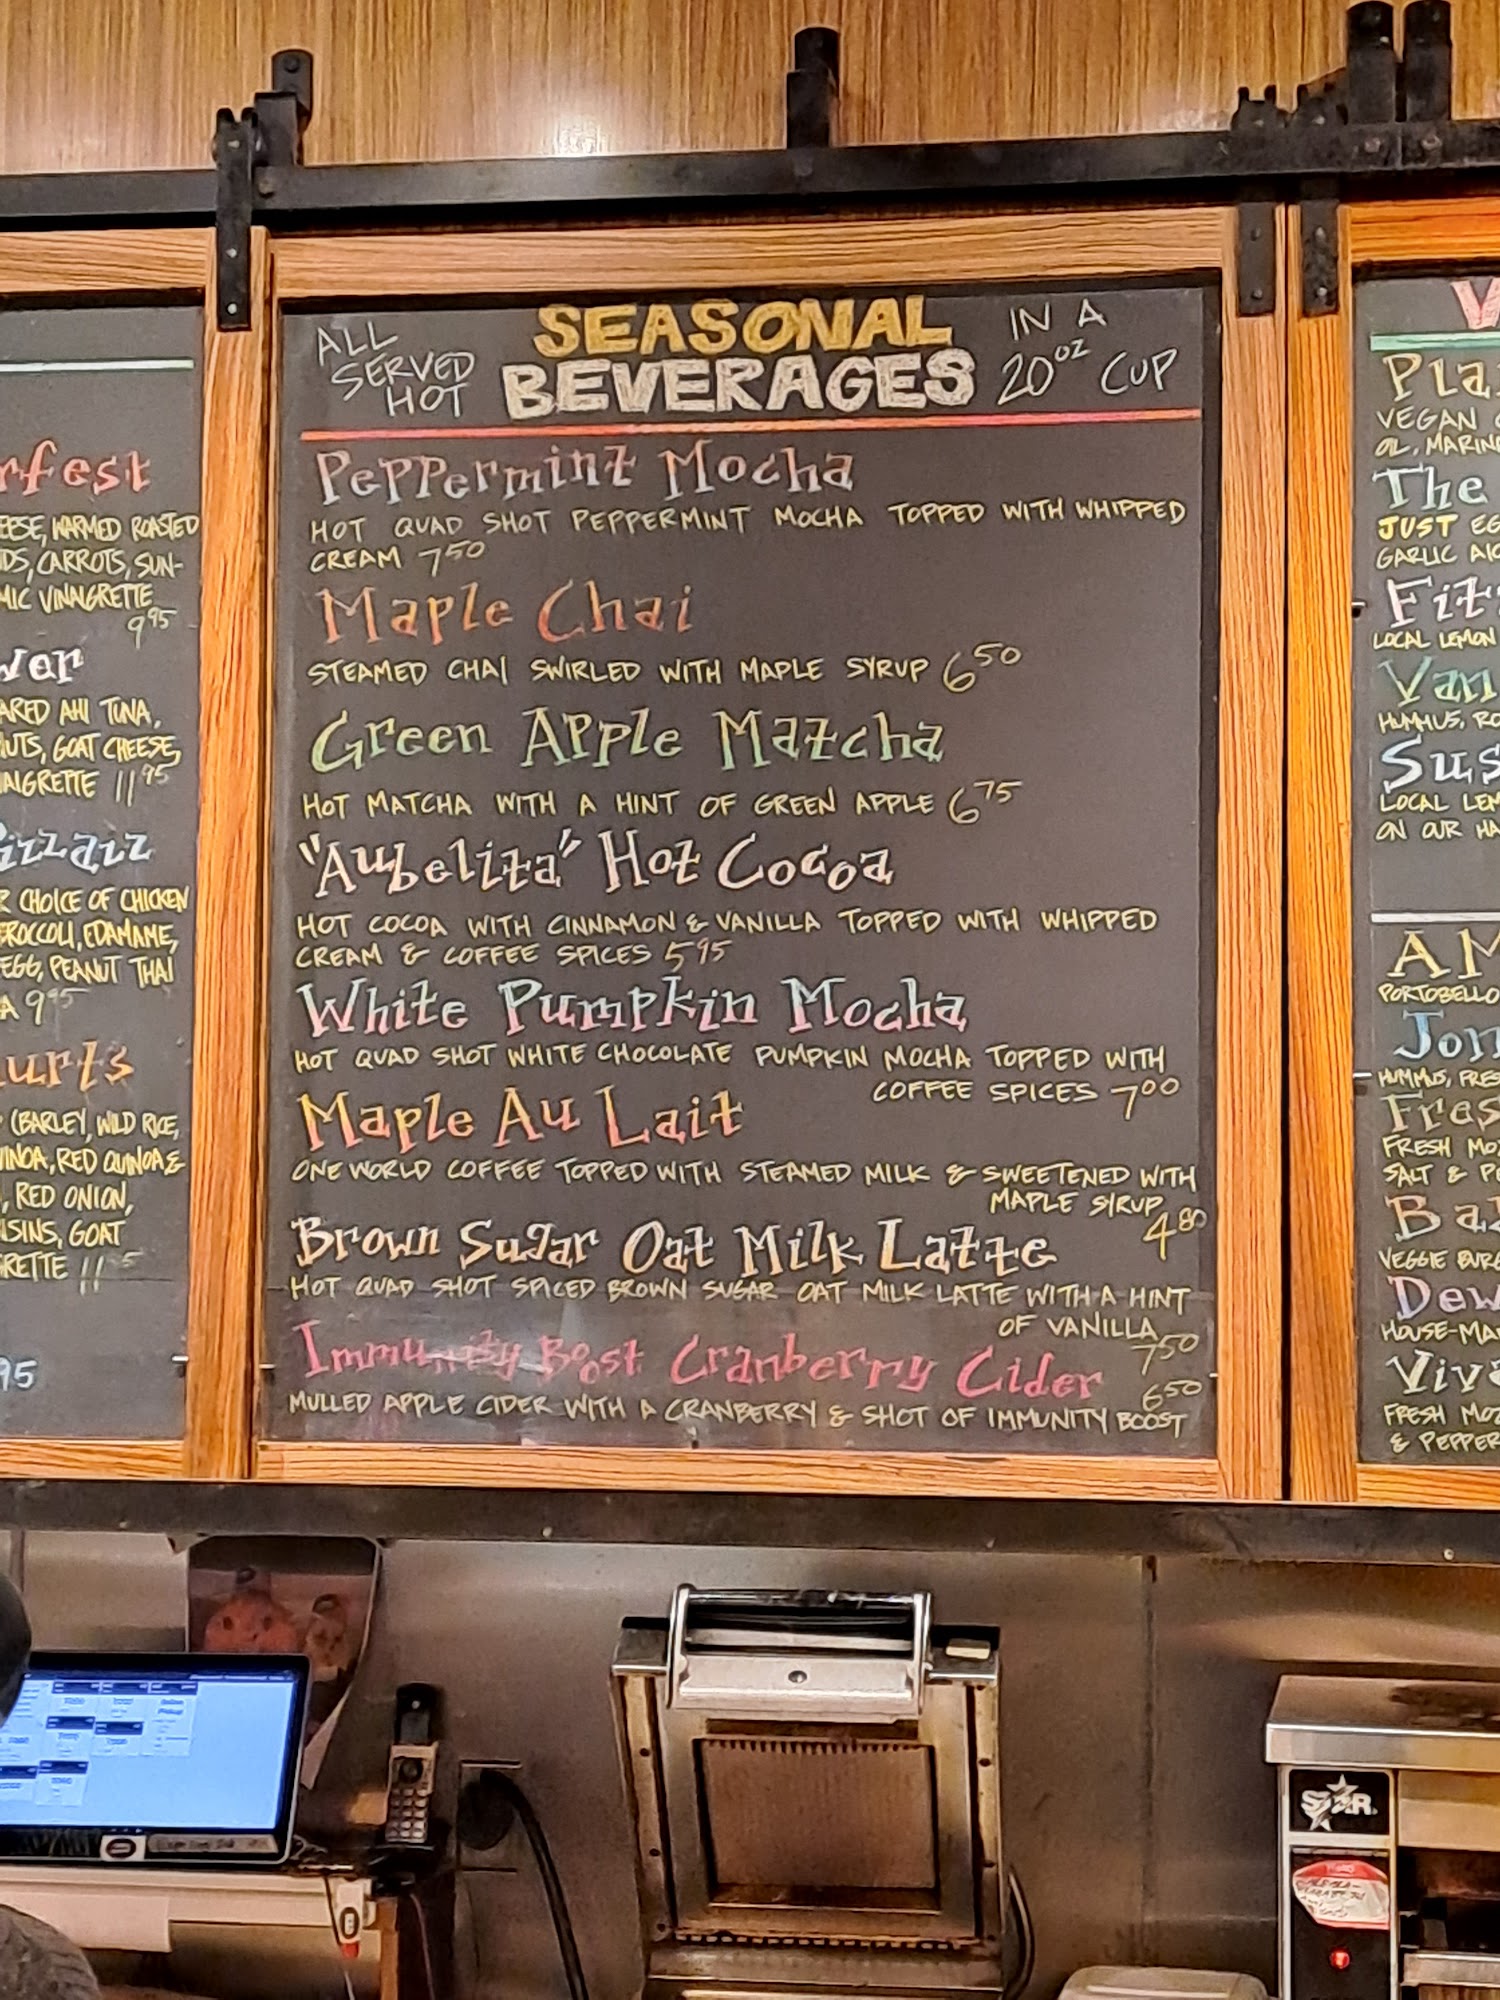 rfest
EESE, WARMED ROASTED
DS, CARROTS, SUN-
MIC VINAIGRETTE
9 95
ver
ARED AHI TUNA,
NUTS, GOAT CHEESE,
NAIGRETTE 11 95
izzazz
R CHOICE OF CHICKEN
BROCCOLI, EDAMAME,
EGG, PEANUT THAI
A 9 95
urts
(BARLEY, WILD RICE,
UINOA, RED QUINOA &
, RED ONION,
ISINS, GOAT
GRETTE 11
95
ALL SERVED HOT
SEASONAL
BEVERAGES
IN A
20 OZ CUP
Peppermint Mocha
HOT QUAD SHOT PEPPERMINT MOCHA TOPPED WITH WHIPPED
CREAM 7 50
Maple Chai
STEAMED CHAI SWIRLED WITH MAPLE SYRUP 6 50
Green Apple Matcha
HOT MATCHA WITH A HINT OF GREEN APPLE 6 75
"Aubelita" Hot Cocoa
HOT COCOA WITH CINNAMON & VANILLA TOPPED WITH WHIPPED
CREAM & COFFEE SPICES 5 95
White Pumpkin Mocha
HOT QUAD SHOT WHITE CHOCOLATE PUMPKIN MOCHA TOPPED WITH
COFFEE SPICES 7 00
Maple Au Lait
ONE WORLD COFFEE TOPPED WITH STEAMED MILK & SWEETENED WITH
MAPLE SYRUP
4 80
Brown Sugar Oat Milk Latte
HOT QUAD SHOT SPICED BROWN SUGAR OAT MILK LATTE WITH A HINT
OF VANILLA
7 50
Immunity Boost Cranberry Cider
6 50
MULLED APPLE CIDER WITH A CRANBERRY & SHOT OF IMMUNITY BOOST
Pla
VEGAN
OIL, MARIN
The
JUST EG
GARLIC AIO
Fit
LOCAL LEMON
Van
HUMMUS, RO
Sus
LOCAL LEM
ON OUR HA
AM
PORTOBELLO
Jon
HUMMUS, FRES
Fres
FRESH MO
SALT & P
Ba
VEGGIE BURG
Dew
HOUSE-MA
Viv
FRESH MOZ
& PEPPER
STAR